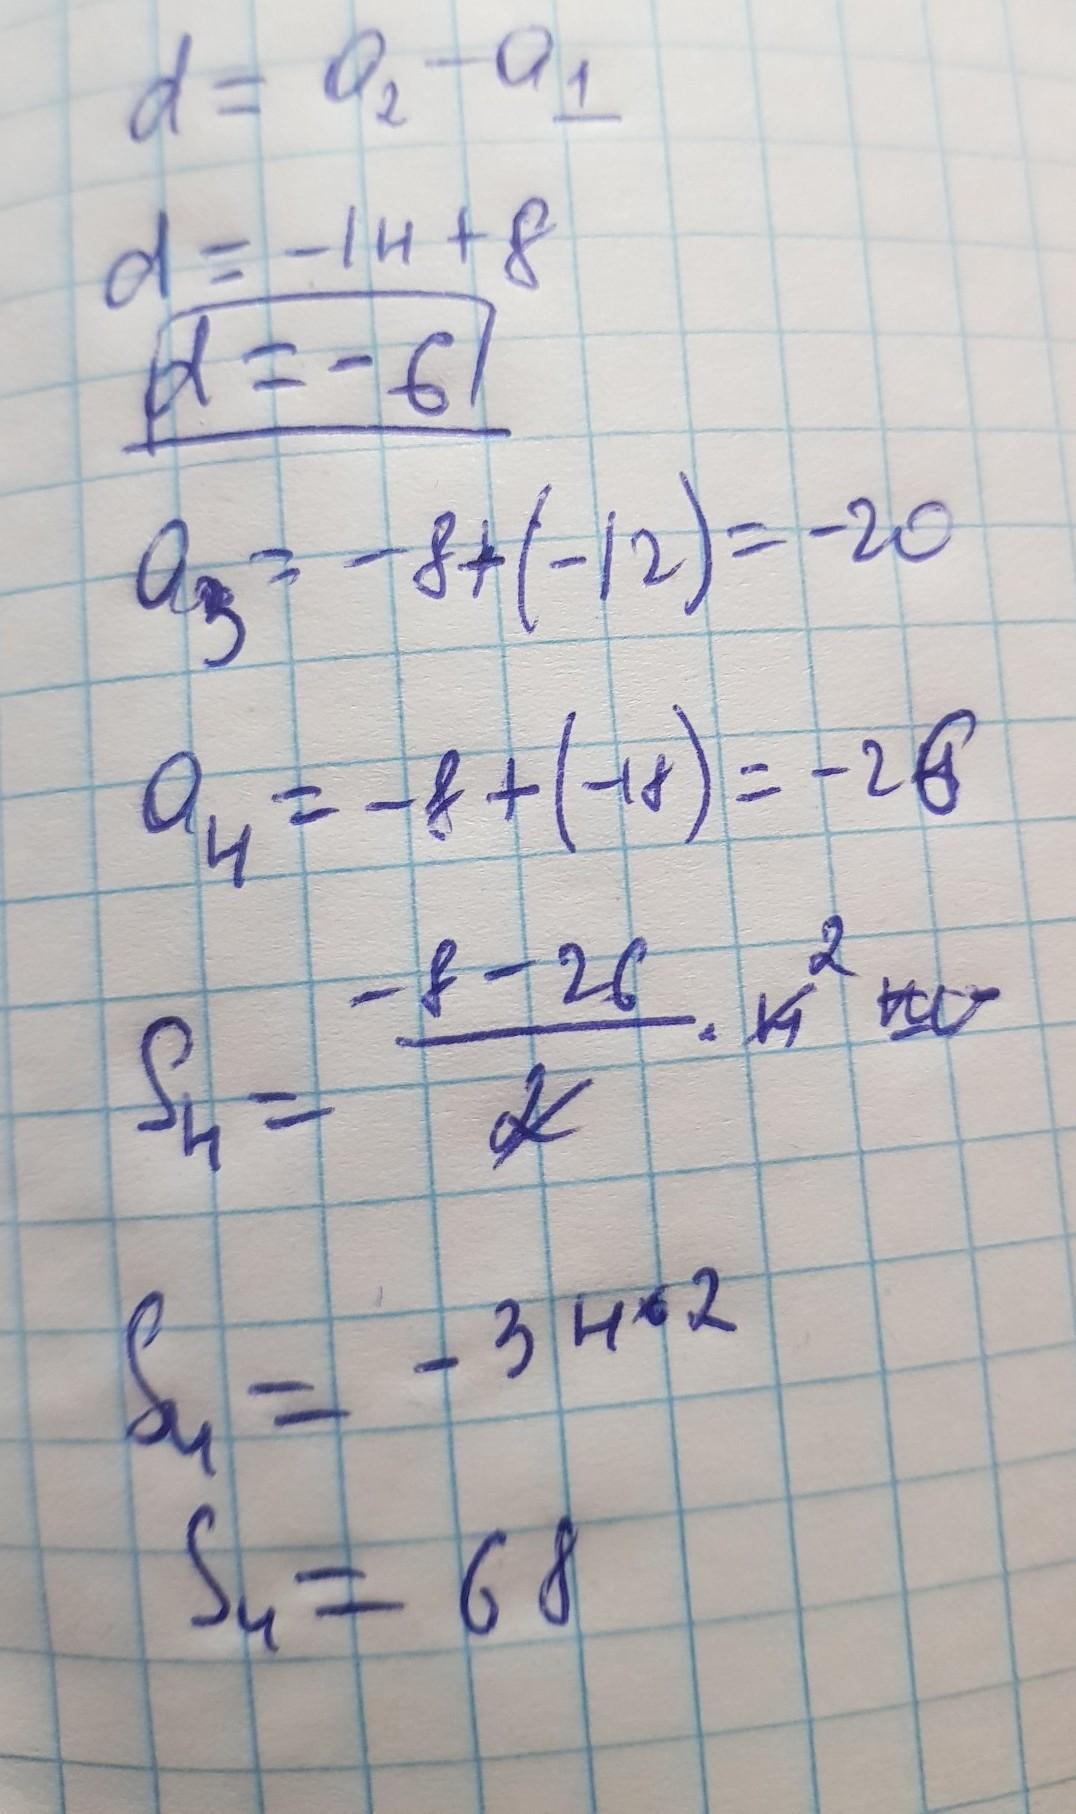 d = a₂ - a₁
d = -14 + 8
d = -6
a₃ = -8+(-12) = -20
a₄ = -8+(-18) = -26
S₄ = (-8-26)/2 · 4 2
S₄ = -34·2
S₄ = 68